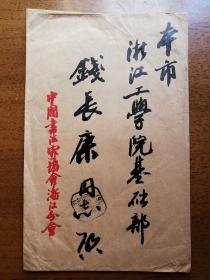 本市
浙江工學院基础部
錢長康同志啟
中國書法家協會浙江分會